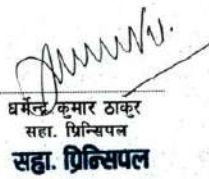 धर्मेन्द्र कुमार ठाकुर
सहा. प्रिन्सिपल
सहा. प्रिन्सिपल